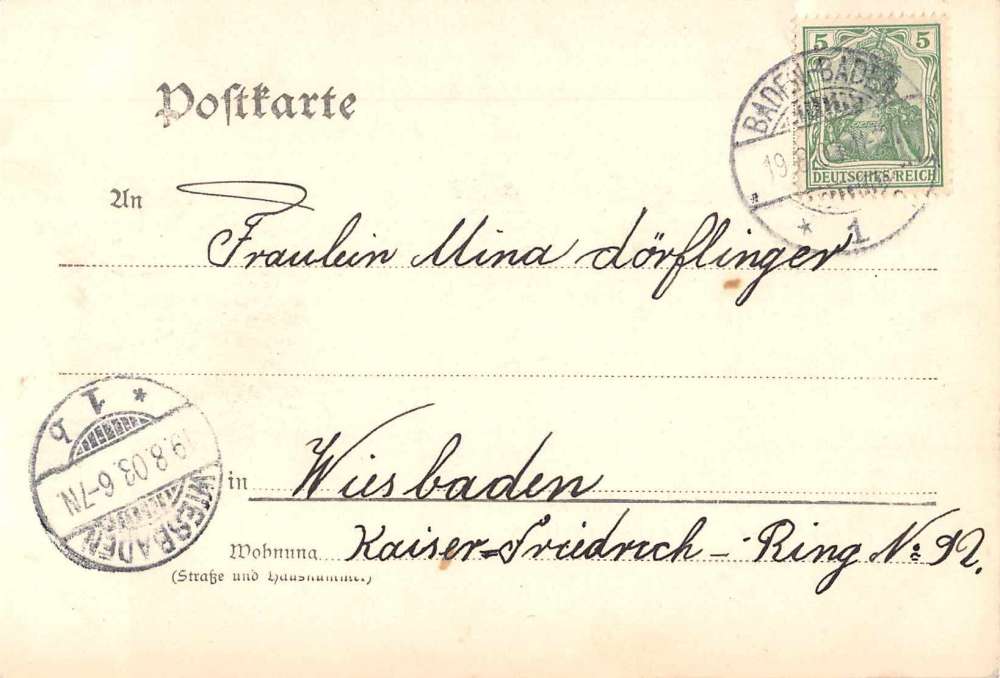 Postkarte
5 5
DEUTSCHES REICH
BADEN-BADEN
19.8.
* 1
An Fraulein Mina dörflinger
in Wiesbaden
Wohnung Kaiser=Friedrich-Ring No 92.
(Straße und Hausnummer)
WIESBADEN
19.8.03.6-7N
* 1 b